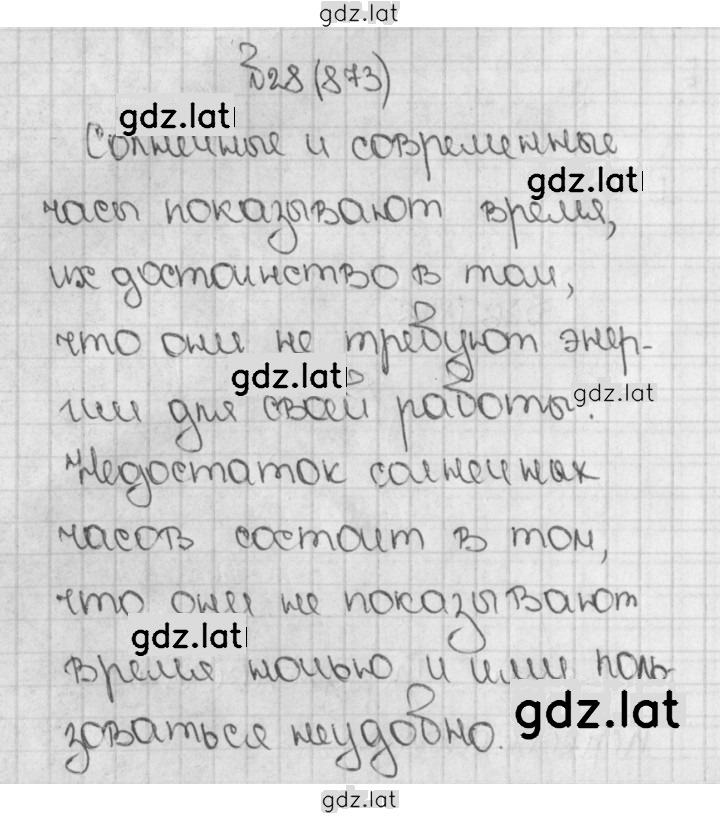 gdz.lat
№28 (873)
gdz.lat
Солнечные и современные
gdz.lat
часы показывают время,
их достоинство в том,
что они не требуют энер-
gdz.lat
gdz.lat
гии для своей работы.
Недостаток солнечных
часов состоит в том,
что они не показывают
gdz.lat
время ночью и ими поль-
gdz.lat
зоваться неудобно.
gdz.lat